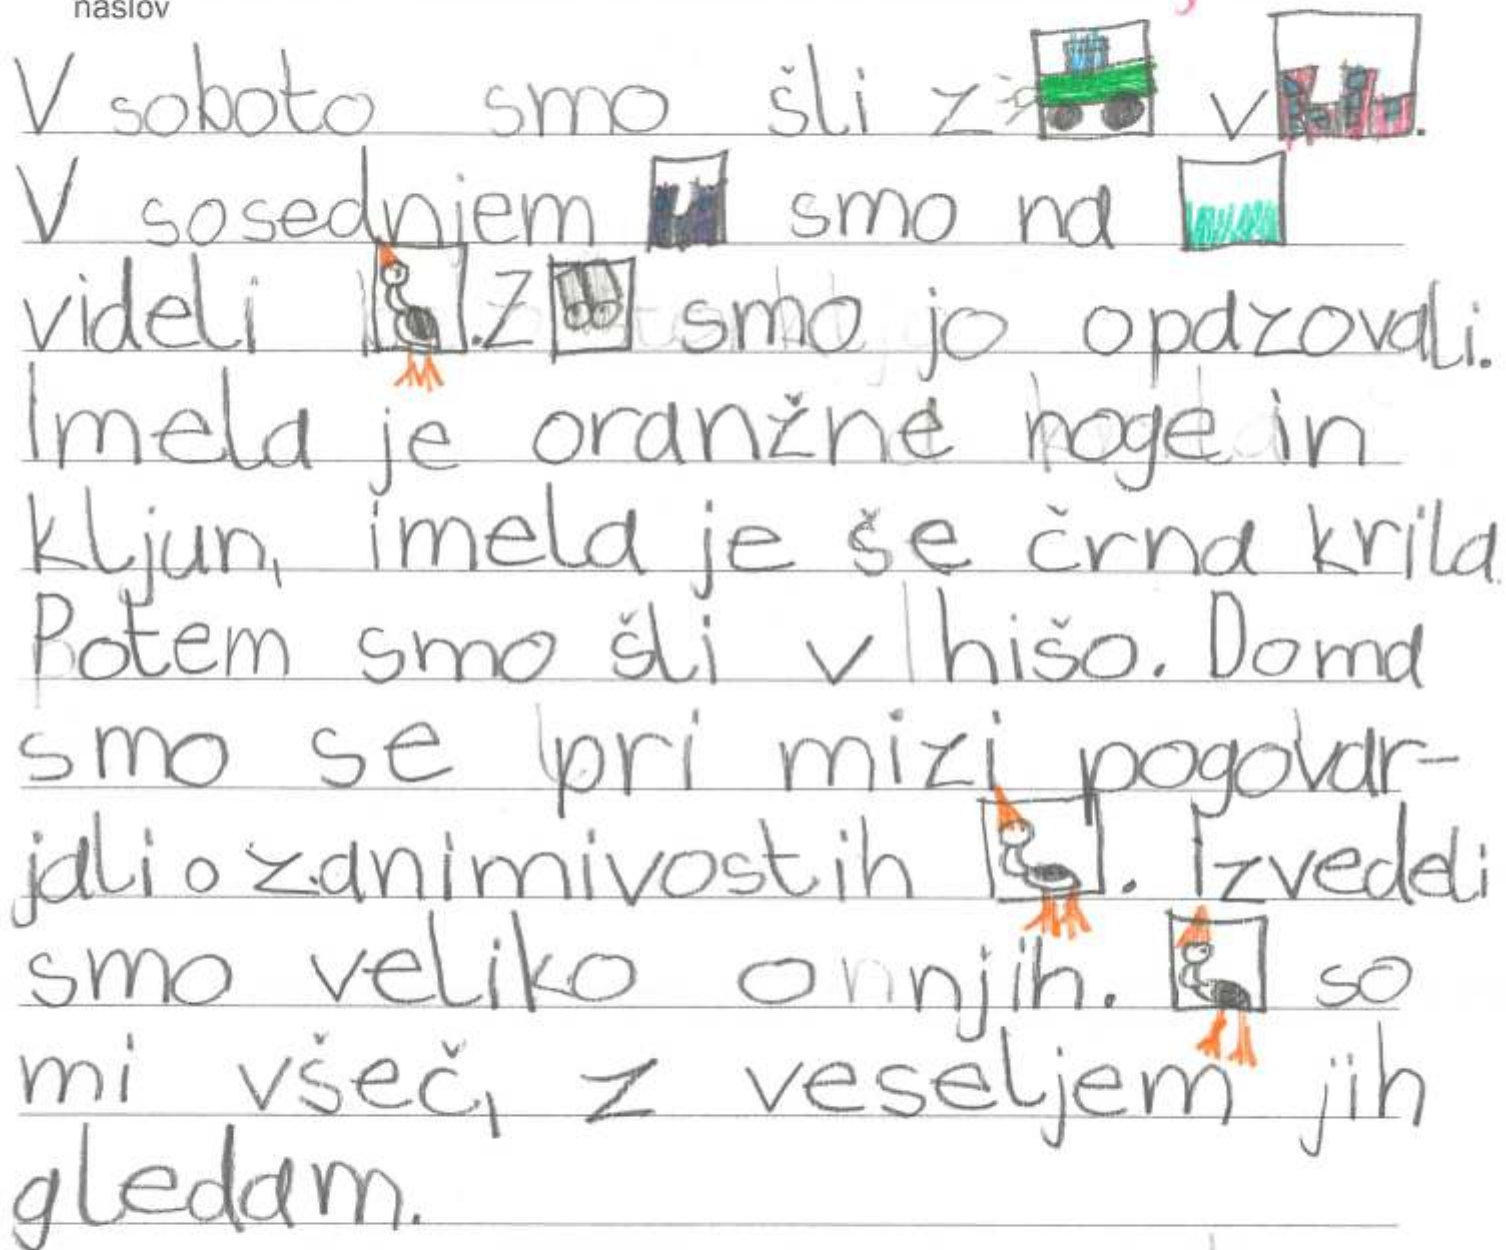 naslov
V soboto smo šli z v.
V sosednjem smo na
videli . Z smo jo opazovali.
Imela je oranžne noge in
kljun, imela je še črna krila.
Potem smo šli v hišo. Doma
smo se pri mizi pogovar-
jali o zanimivostih . Izvedeli
smo veliko o njih. so
mi všeč, z veseljem jih
gledam.